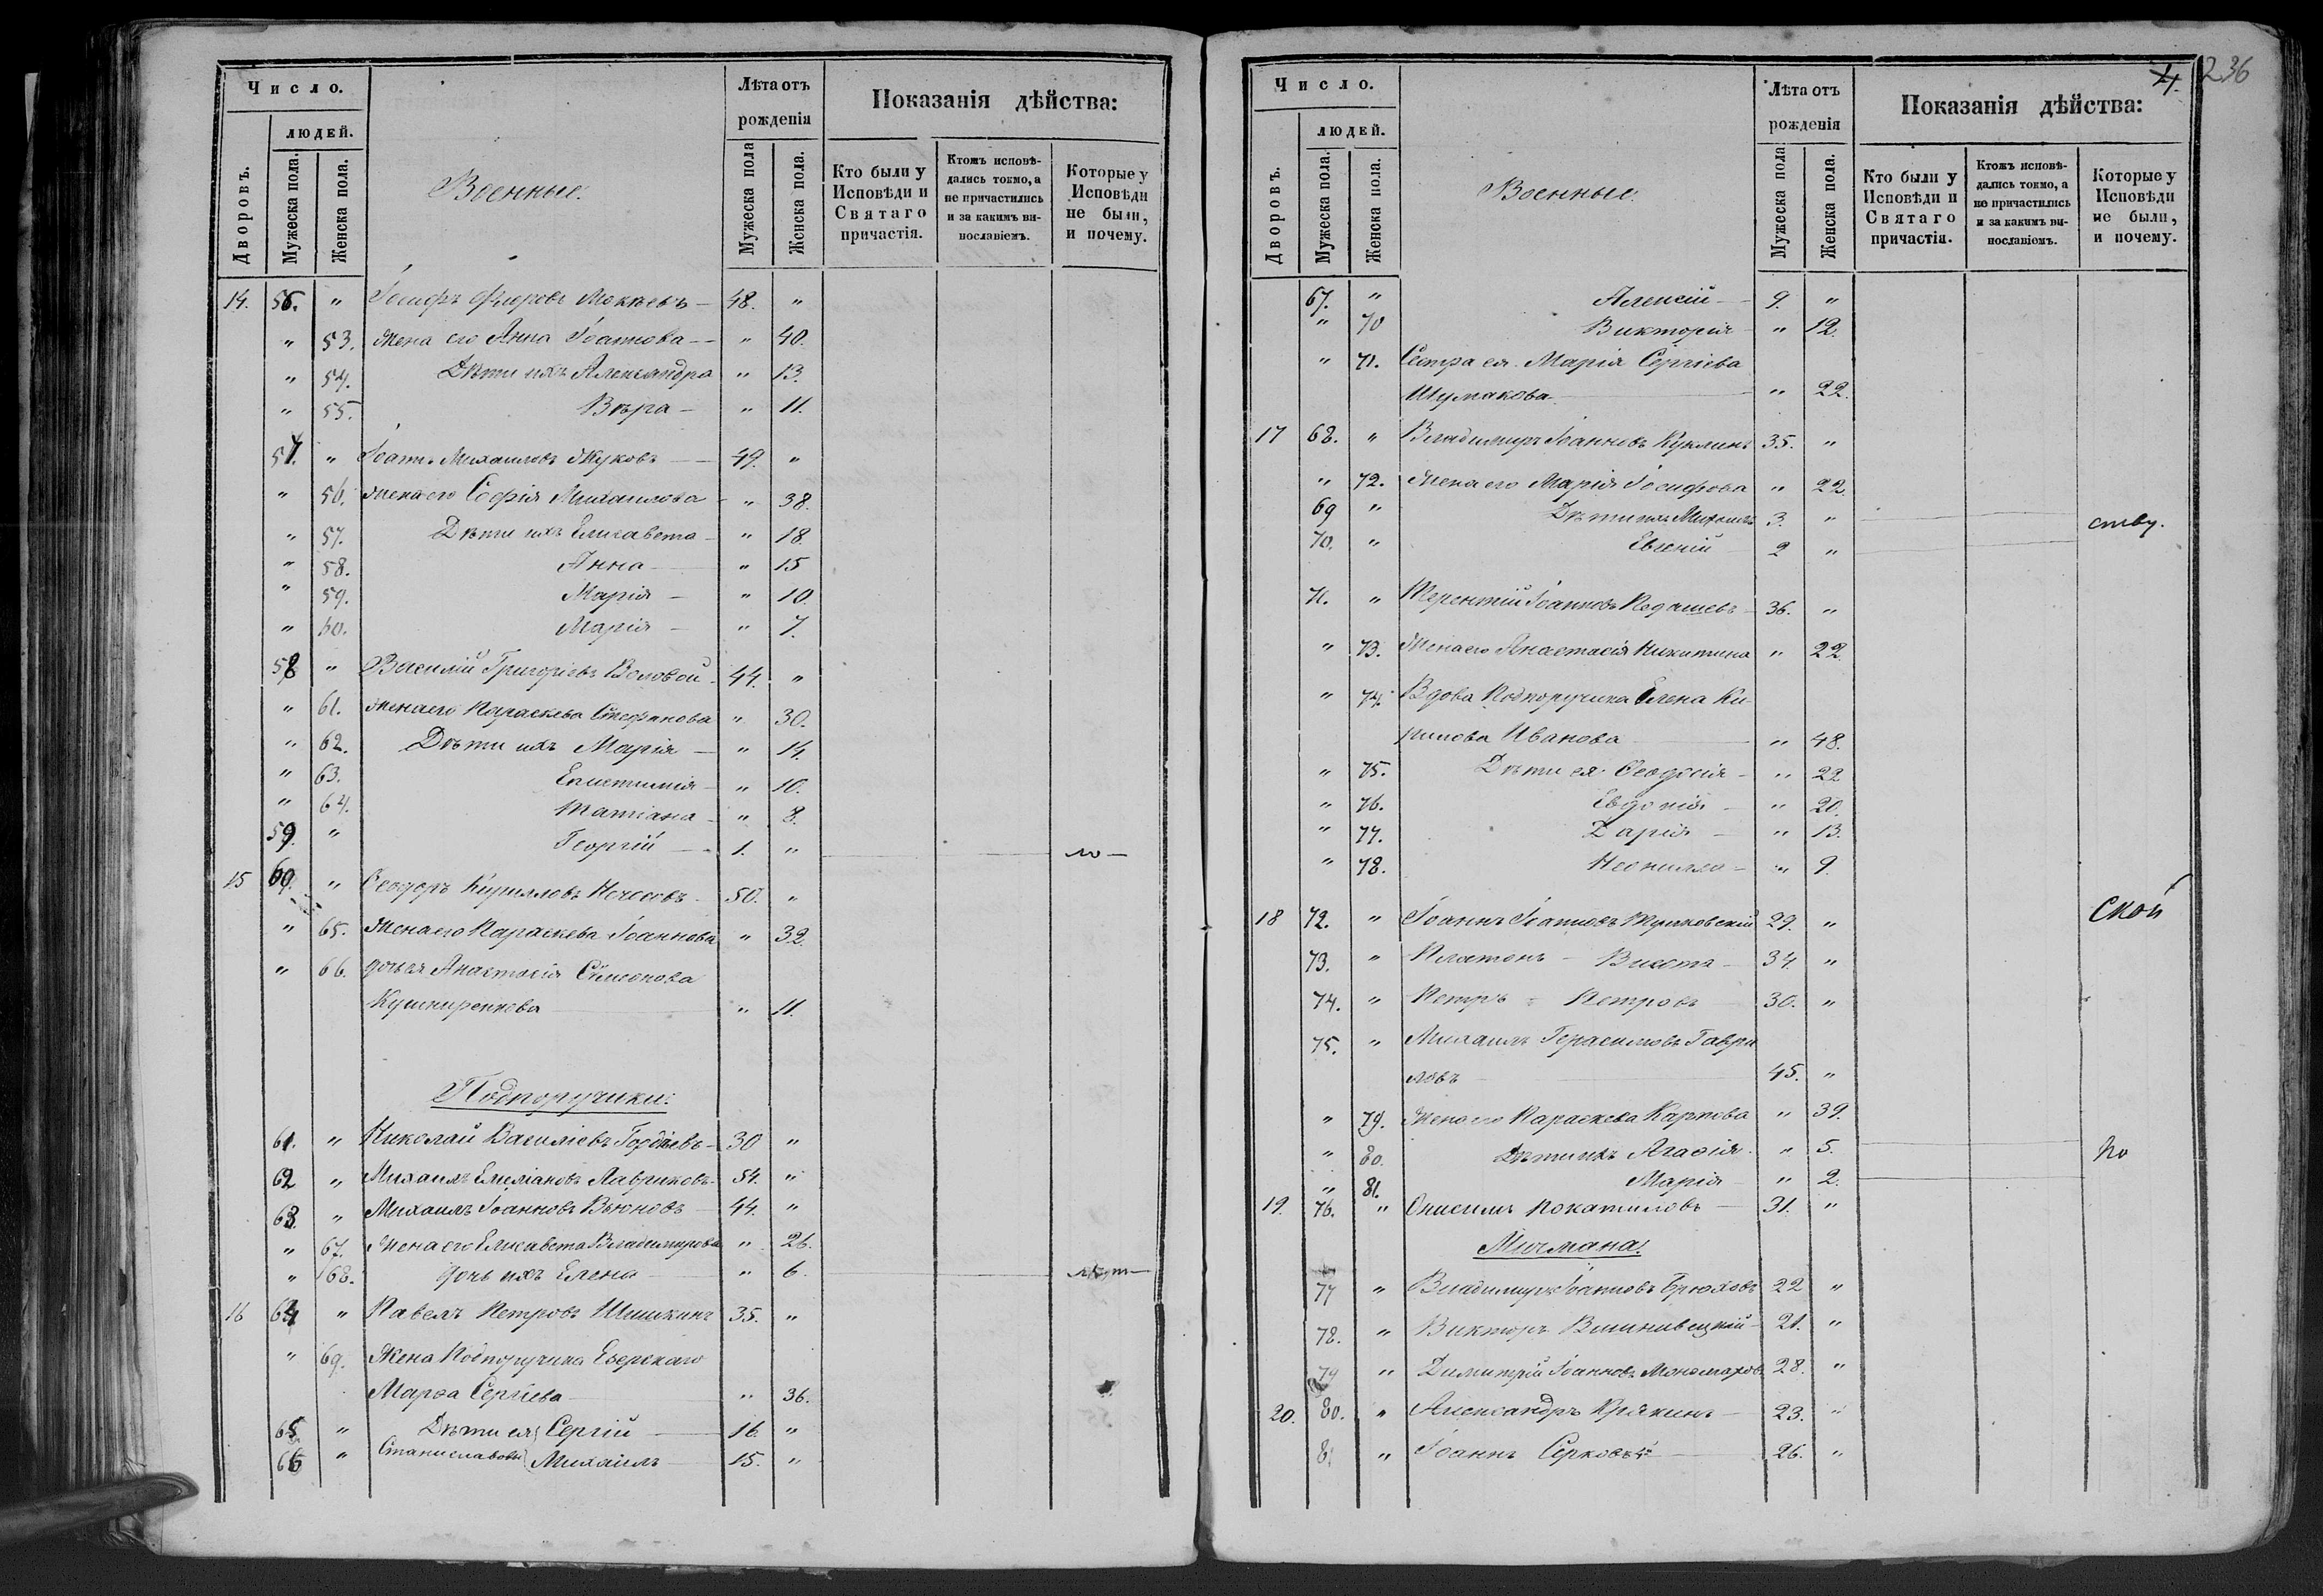 Число.
Лѣта отъ рожденія
Показанія дѣйства:
людей.
Дворовъ.
Мужеска пола.
Женска пола.
Военные.
Мужеска пола
Женска пола.
Кто были у Исповѣди и Святаго причастія.
Ктожъ исповѣдались токмо, а не причастились и за какимъ винословіемъ.
Которые у Исповѣди не были, и почему.
14. 56. " Іосифъ Флоровъ Мокѣевъ 48. "
" 53. Жена его Анна Іоаннова " 40.
" 54. Дѣти ихъ Александра " 13.
" 55. Вѣра " 11.
57. " Іоаннъ Михаиловъ Жуковъ 49. "
" 56. Жена его Софія Михаилова " 38.
" 57. Дѣти ихъ Елисавета " 18.
" 58. Анна " 15
" 59. Марія " 10.
" 60. Марія " 7.
58 " Василій Григоріевъ Воловой 44. "
" 61. Жена его Параскева Стефанова " 30.
" 62. Дѣти ихъ Марія " 14.
" 63. Епистимія " 10.
" 64. Татіана " 8.
59. " Георгій 1. " ло
15 60. " Ѳеодоръ Кирилловъ Носовъ 50. "
" 65. Жена его Параскева Іоаннова " 32.
" 66. дочь ея Анастасія Сѵмеонова
Кушниренкова " 11.
Подпоручики:
61. " Николай Василіевъ Гордѣевъ 30 "
62 " Михаилъ Емеліановъ Лавриковъ 54. "
63. " Михаилъ Іоанновъ Вьюновъ 44. "
" 67. Жена его Елисавета Владимирова " 26.
" 68. дочь ихъ Елена " 6. лѣт
16 64 " Павелъ Петровъ Шишкинъ 35. "
" 69. Жена Подпоручика Езерскаго
Марѳа Сергіева " 36.
65 " Дѣти ея Сергій 16 "
66 " Станиславовы Михаилъ 15. "
4. 236
Число.
Лѣта отъ рожденія
Показанія дѣйства:
людей.
Дворовъ.
Мужеска пола.
Женска пола.
Военные.
Мужеска пола
Женска пола.
Кто были у Исповѣди и Святаго причастія.
Ктожъ исповѣдались токмо, а не причастились и за какимъ винословіемъ.
Которые у Исповѣди не были, и почему.
67. " Алексій 9. "
" 70 Викторія " 12.
" 71. Сестра ея Марія Сергіева
Шумакова " 22.
17 68. " Владимиръ Іоанновъ Куклинъ 35. "
" 72. Жена его Марія Іосифова " 22.
69 " Дѣти ихъ Михаилъ 3. " ству.
70. " Евгеній 2 "
71. " Терентій Іоанновъ Педашевъ 36. "
" 73. Жена его Анастасія Никитина " 22.
" 74. Вдова Подпоручика Елена Ки-
рилова Иванова " 48.
" 75. Дѣти ея Ѳеодосія " 22
" 76. Евдокія " 20.
" 77. Дарія " 13.
" 78. Неонилла " 9.
18 72. " Іоаннъ Іоанновъ 29. " ской
73. " Платонъ 34. "
74. " Петръ Петровъ 30. "
75. " Михаилъ Герасимовъ Гаври
ловъ 45. "
" 79. Жена его Параскева Карпова " 39.
" 80. Дѣти ихъ Агаѳія " 5. по
" 81. Марія " 2.
19. 76. " Онисимъ Покатиловъ 31. "
Мичмана:
77 " Владимиръ Іоанновъ Брюховъ 22 "
78. " Викторъ Вишнивецкій 21. "
79 " Димитрій Іоанновъ Мономаховъ 28. "
20. 80. " Александръ Крякинъ 23. "
81 " Іоаннъ Серковъ 26. "